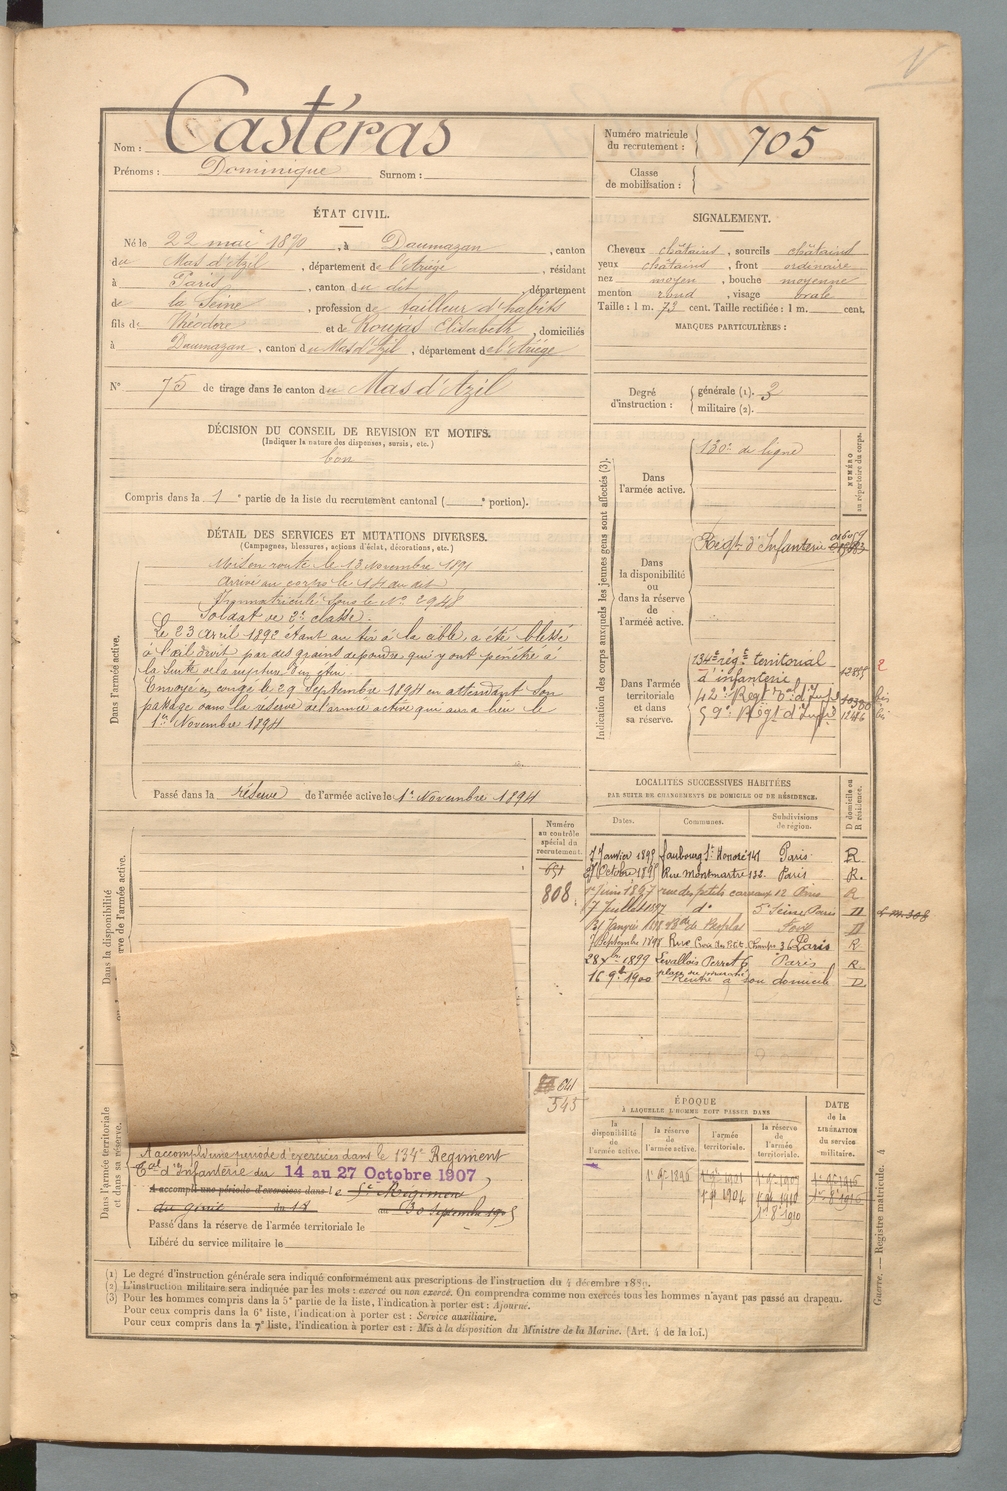 Nom : Castéras
Prénoms : Dominique Surnom :
Numéro matricule du recrutement : 705
Classe de mobilisation :
ÉTAT CIVIL.
Né le 22 mai 1870, à Daumazan, canton
du Mas d'Azil, département de l'Ariège, résidant
à Paris, canton du dit, département
de la Seine, profession de tailleur d'habits
fils de Théodore et de Roujas Elisabeth, domiciliés
à Daumazan, canton du Mas d'Azil, département de l'Ariège
N° 75 de tirage dans le canton du Mas d'Azil
SIGNALEMENT.
Cheveux châtains, sourcils châtains
yeux châtains, front ordinaire
nez moyen, bouche moyenne
menton rond, visage ovale
Taille : 1 m. 73 cent. Taille rectifiée : 1 m. cent.
MARQUES PARTICULIÈRES :
Degré d'instruction : générale (1). 3
militaire (2).
DÉCISION DU CONSEIL DE REVISION ET MOTIFS.
(Indiquer la nature des dispenses, sursis, etc.)
bon
Compris dans la 1e partie de la liste du recrutement cantonal ( e portion).
DÉTAIL DES SERVICES ET MUTATIONS DIVERSES.
(Campagnes, blessures, actions d'éclat, décorations, etc.)
Dans l'armée active.
Mis en route le 13 novembre 1891
Arrivé au corps le 14 du dit
Immatriculé sous le N° 2948
Soldat de 2e classe.
Le 23 avril 1892 étant au tir à la cible, a été blessé
à l'œil droit par des grains de poudre qui y ont pénétré à
la suite de la rupture d'un étui.
Envoyé en congé le 29 Septembre 1894 en attendant son
passage dans la réserve de l'armée active qui aura lieu le
1er Novembre 1894
Passé dans la réserve de l'armée active le 1er Novembre 1894
Indication des corps auxquels les jeunes gens sont affectés (3).
NUMÉRO au répertoire du corps.
Dans l'armée active.
130e de ligne
Dans la disponibilité ou dans la réserve de l'armée active.
Régt d'Infanterie
Dans l'armée territoriale et dans sa réserve.
134e régt territorial
d'infanterie
42e Régt d'Infie
59e Régt d'Infie
LOCALITÉS SUCCESSIVES HABITÉES
PAR SUITE DE CHANGEMENTS DE DOMICILE OU DE RÉSIDENCE.
D domicile ou R résidence.
Dates. Communes. Subdivisions de région.
7 Janvier 1895 faubourg St Honoré 141 Paris R
Octobre 1895 Rue Montmartre 132 Paris R.
1er Juin 1897 rue des petits carreaux 12 Paris R
17 Juillet 1897 do 5e Seine Paris D
31 Janvier 1898 Foix D
7 Septembre 1898 Rue Croix des Petits Champs 36 Paris R
28 Xbre 1899 Levallois Perret 6 Paris R.
16 9bre 1900 Rentré à son domicile D
Dans la disponibilité
réserve de l'armée active.
Numéro au contrôle spécial du recrutement.
651
808
641
545
Dans l'armée territoriale et dans sa réserve.
A accompli une période d'exercices dans le 134e Régiment
Tal d'Infanterie du 14 au 27 Octobre 1907
A accompli une période d'exercices dans le Régiment
du génie du 18 au 30 Septembre 1905
Passé dans la réserve de l'armée territoriale le
Libéré du service militaire le
ÉPOQUE
À LAQUELLE L'HOMME DOIT PASSER DANS
DATE de la LIBÉRATION du service militaire.
la disponibilité de l'armée active.
la réserve de l'armée active.
l'armée territoriale.
la réserve de l'armée territoriale.
Guerre. — Registre matricule. 4
(1) Le degré d'instruction générale sera indiqué conformément aux prescriptions de l'instruction du 4 décembre 1889.
(2) L'instruction militaire sera indiquée par les mots : exercé ou non exercé. On comprendra comme non exercés tous les hommes n'ayant pas passé au drapeau.
(3) Pour les hommes compris dans la 5e partie de la liste, l'indication à porter est : Ajourné.
Pour ceux compris dans la 6e liste, l'indication à porter est : Service auxiliaire.
Pour ceux compris dans la 7e liste, l'indication à porter est : Mis à la disposition du Ministre de la Marine. (Art. 4 de la loi.)